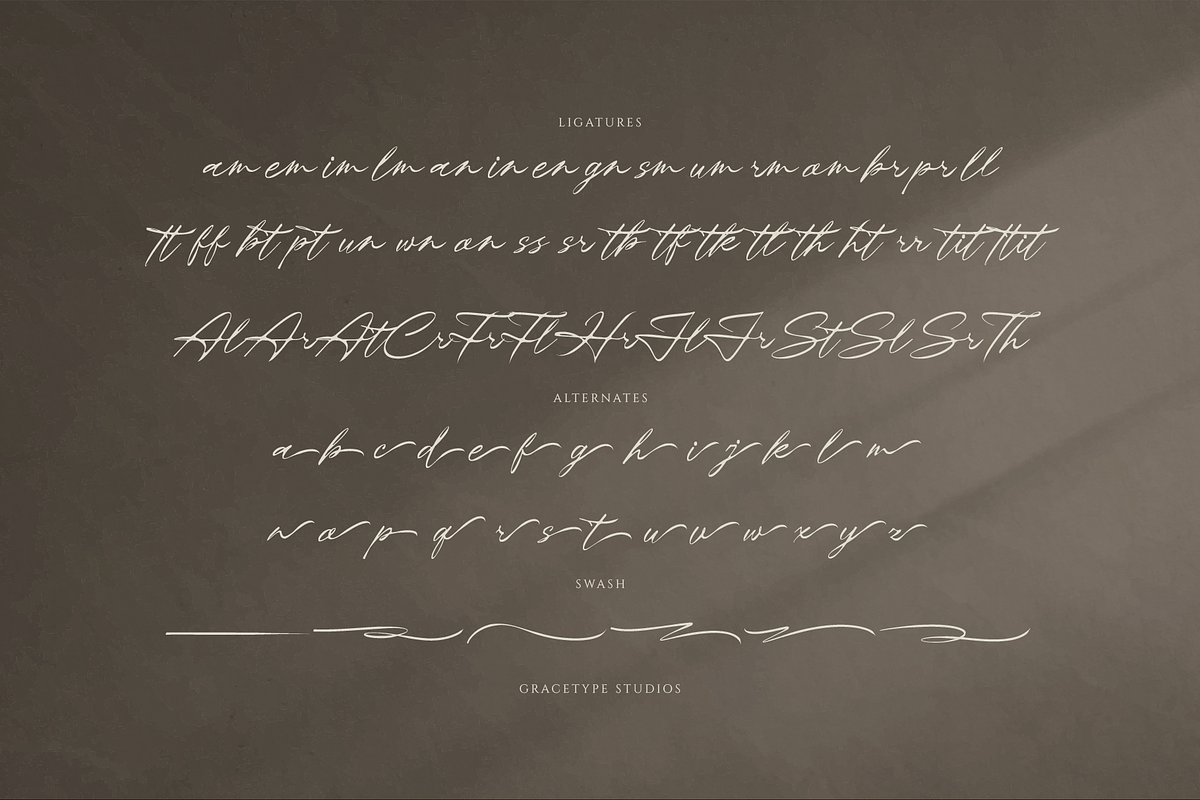 LIGATURES
am em im lm an in en gn sm um rm om br pr ll
tt ff bt pt un wn on ss sr tb tf tk tl th ht rr tit ttit
Al Ar At Cr Fr Fl Hr Jl Jr St Sl Sr Th
ALTERNATES
a b c d e f g h i j k l m
n o p q r s t u v w x y z
SWASH
GRACETYPE STUDIOS